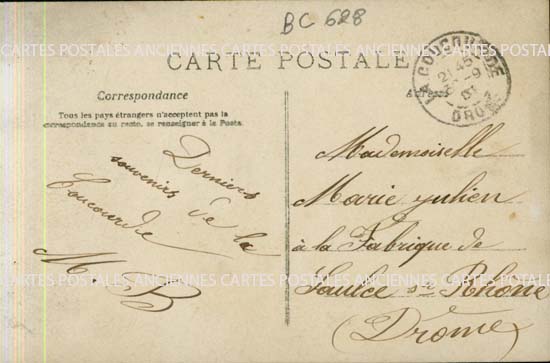 BC 628
CARTE POSTALE
LA COUCOURDE
DROME
Correspondance
Adresse
Tous les pays étrangers n'acceptent pas la
correspondance au recto, se renseigner à la Poste.
Derniers
souvenirs de la
Coucourde
M. B
Mademoiselle
Marie Julien
à la Fabrique de
Saulce s/- Rhône
(Drôme)
CARTES POSTALES ANCIENNES CARTES POSTALES ANCIENNES CARTES POSTALES
CARTES POSTALES ANCIENNES CARTES POSTALES ANCIENNES CARTES POSTALES